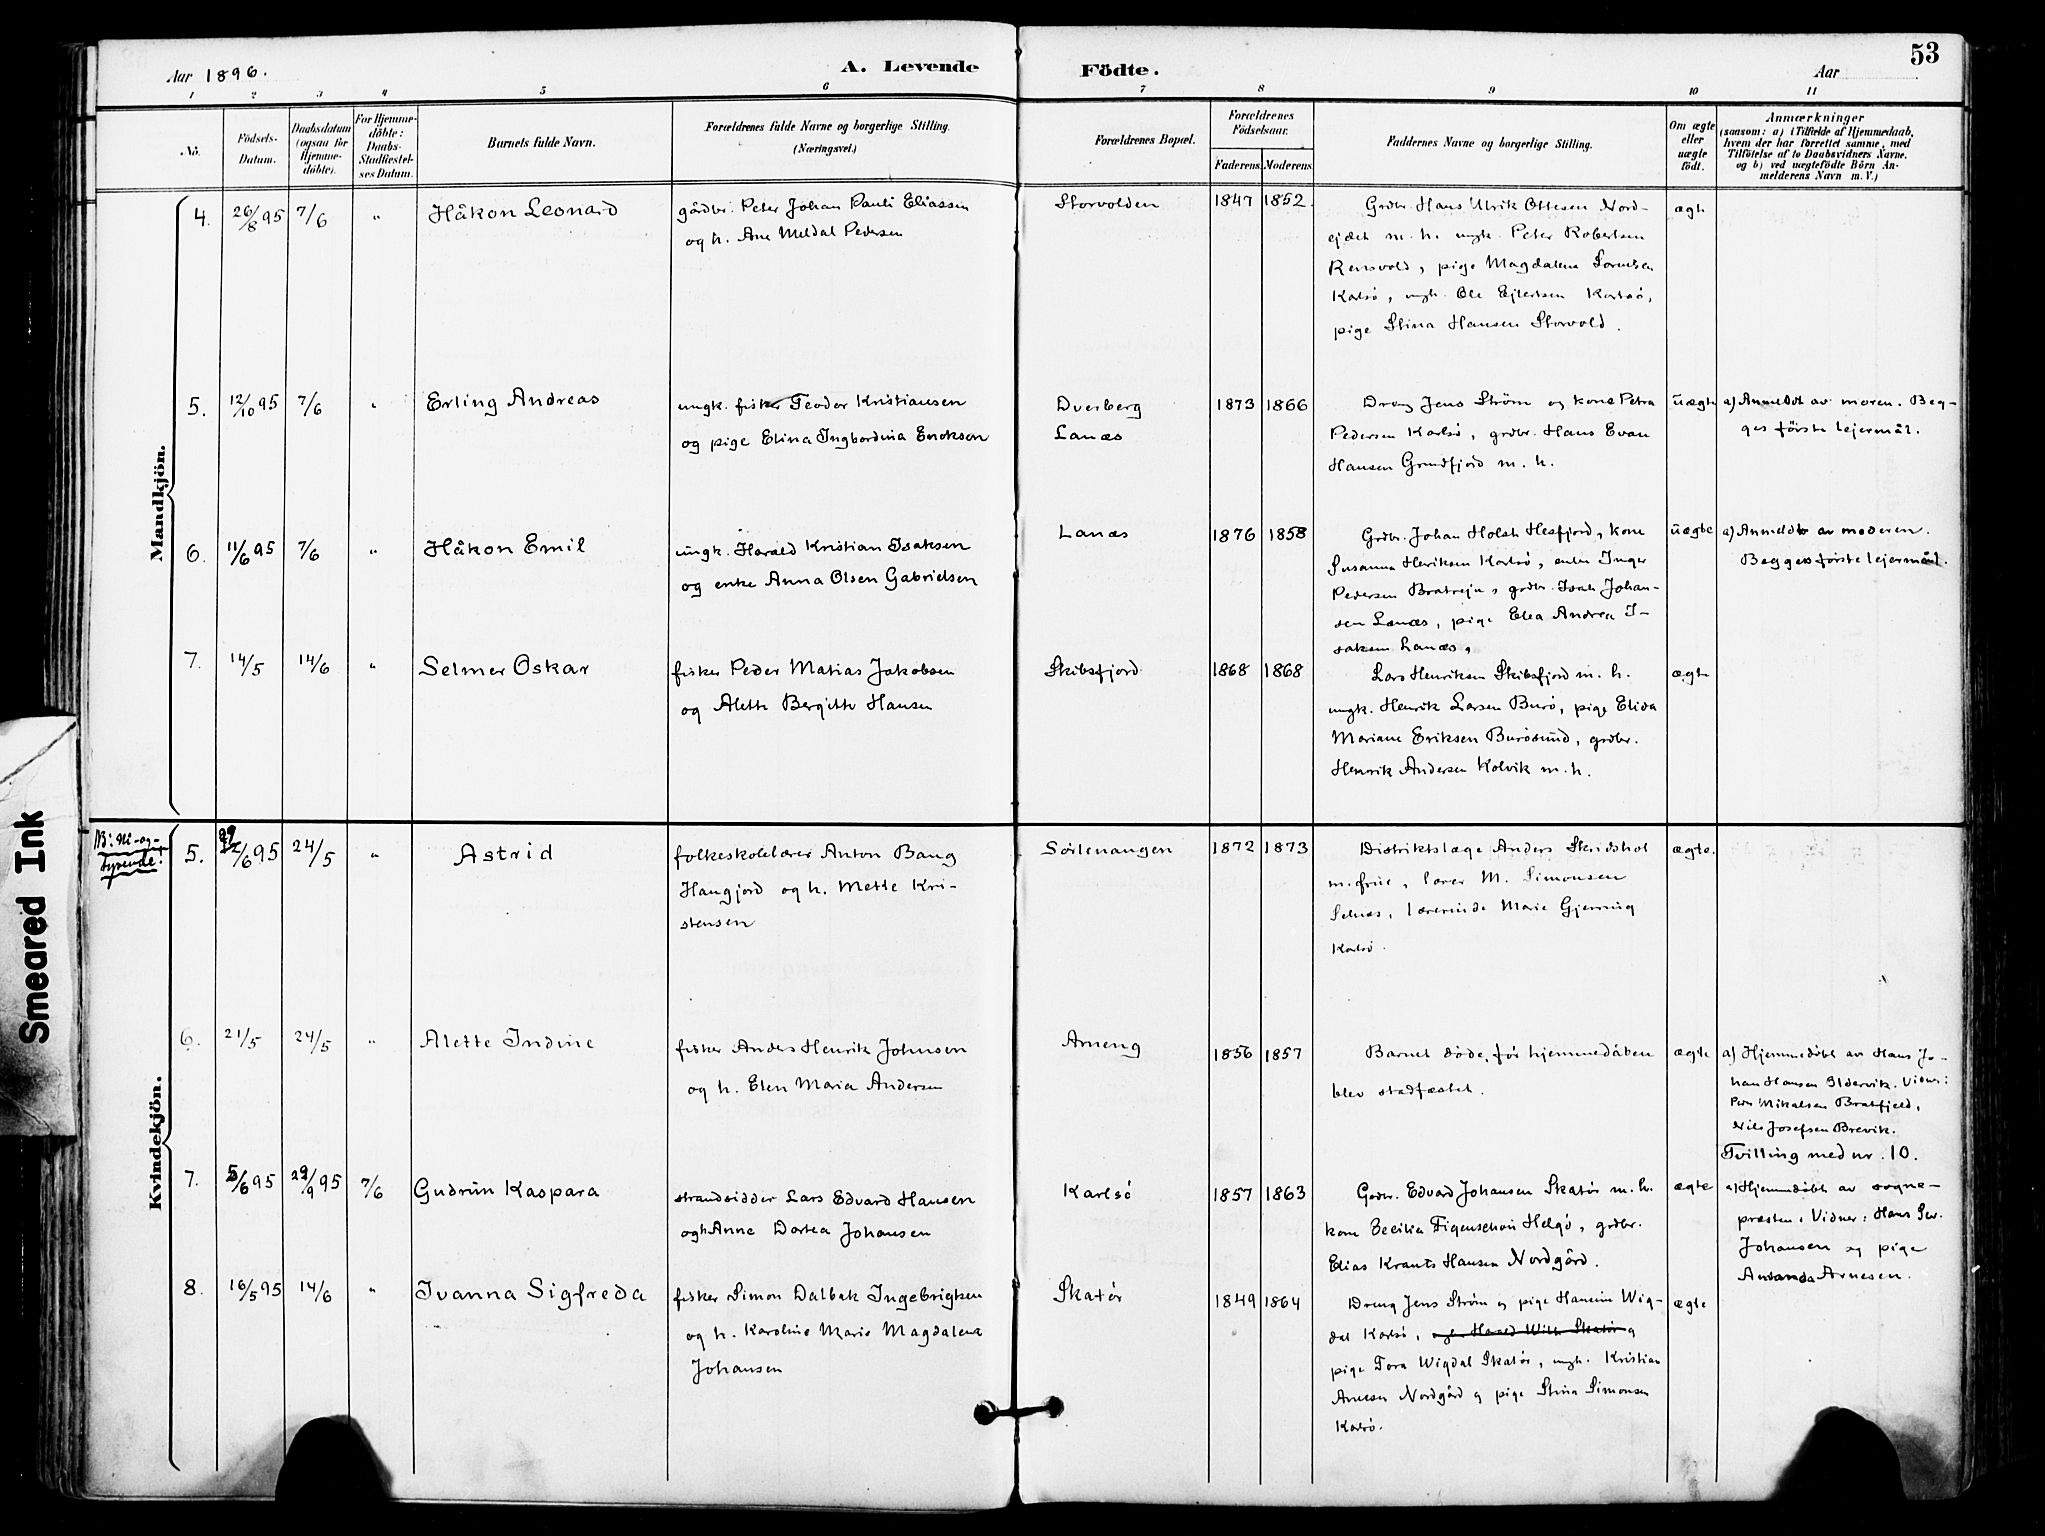 53
Aar 1896.
A. Levende Födte.
Aar
1 2 3 4 5 6 7 8 9 10 11
No.
Födsels-
Datum.
Daabsdatum
(ogsaa for
Hjemme-
döbte).
For Hjemme-
döbte:
Daabs-
Stadfæstel-
ses Datum.
Barnets fulde Navn.
Forældrenes fulde Navne og borgerlige Stilling.
(Næringsvei.)
Forældrenes Bopæl.
Forældrenes
Födselsaar.
Faderens Moderens
Faddernes Navne og borgerlige Stilling.
Om ægte
eller
uægte
födt.
Anmærkninger
(saasom: a) i Tilfælde af Hjemmedaab,
hvem der har forrettet samme, med
Tilföielse af to Daabsvidners Navne.
og b) ved uægtefödte Börn An-
melderens Navn m. V.)
Mandkjön.
4. 26/8 95 7/6 " Håkon Leonard
gårdbr. Peter Johan Pauli Eliassen
og h. Ane Meldal Pedersen
Storvolden 1847 1852.
Grdbr. Hans Ulrik Ottesen Nord-
ejdet m. h. ungk. Peter Robertsen
Rensvold, pige Magdalena
Karlsö, ungk. Ole Ejlertsen Karlsö,
pige Stina Hansen Storvold.
ægte
5. 12/10 95 7/6 " Erling Andreas
ungk. fisker Teodor Kristiansen
og pige Elina Ingbordina Erikson
Dverberg
Lanæs
1873 1866
Dreng Jens Ström og kone Petra
Pedersen Karlsö, grdbr. Hans Evan
Hansen Grundfjord m. h.
uægte
a) Anmeldt av moren. Beg-
ges förste lejermål.
6. 11/6 95 7/6 " Håkon Emil
ungk. Harald Kristian Isaksen
og enke Anna Olsen Gabrielsen
Lanæs 1876 1858
Grdbr. Johan Holst Hesfjord, kone
Susanna Henriksen Karlsö, enke Inger
Pedersen Bratrejn, grdbr. Isak Johan-
sen Lanæs, pige Elea Andrea I-
saksen Lanæs,
uægte
a) Anmeldt av moderen.
Begges förste lejermål.
7. 14/5 14/6 " Selmer Oskar
fisker Peder Matias Jakobsen
og Alette Bergitte Hansen
Skibsfjord 1868 1868
Lars Henriksen Skibsfjord m. h.
ungk. Henrik Larsen Burö, pige Elida
Mariane Eriksen Burösund, grdbr.
Henrik Andersen Kolvik m. h.
ægte
Kvindekjön.
B: Ni-og-
tyvende!
5. 29/6 95 24/5 " Astrid
folkeskolelærer Anton Bang
Haugjord og h. Mette Kri-
stensen
Sörlenangen 1872 1873
Distriktslæge Anders Skridshol
m. frue, lærer M. Simonsen
Selnæs, lærerinde Marie Gjerning
Karlsö.
ægte.
6. 21/5 24/5 " Alette Indine
fisker Anders Henrik Johnsen
og h. Elen Maria Andersen
Arneng 1856 1857
Barnet döde, för hjemmedåben
blev stadfæstet.
ægte
a) Hjemmedöbt av Hans Jo-
han Hansen Oldervik. Vidner:
Peder Mikalsen Bratfjeld,
Nils Josefsen Brevik.
Tvilling med nr. 10.
7. 5/6 95 29/9 95 7/6 Gudrun Kaspara
strandsidder Lars Edvard Hansen
og h Anne Dortea Johansen
Karlsö 1857 1863
Grdbr. Edvard Johansen Skatör m. h.
kone Cecilia Figenschou Helgö, grdbr.
Elias Krants Hansen Nordgård.
ægte
a) Hjemmedöbt av sogne-
præsten. Vidner: Hans Sev.
Johansen og pige
Amanda Arnesen.
8. 16/5 95 14/6 " Ivanna Sigfreda
fisker Simon Dalbak Ingebrigtsen
og h. Karoline Marie Magdalena
Johansen
Skatör 1849 1864
Dreng Jens Ström og pige Hansine Wig-
dal Karlsö,
pige Tora Wigdal Skatör, ungk. Kristian
Arnesen Nordgård og pige Stina Simonsen
Karlsö.
ægte
Smeared Ink